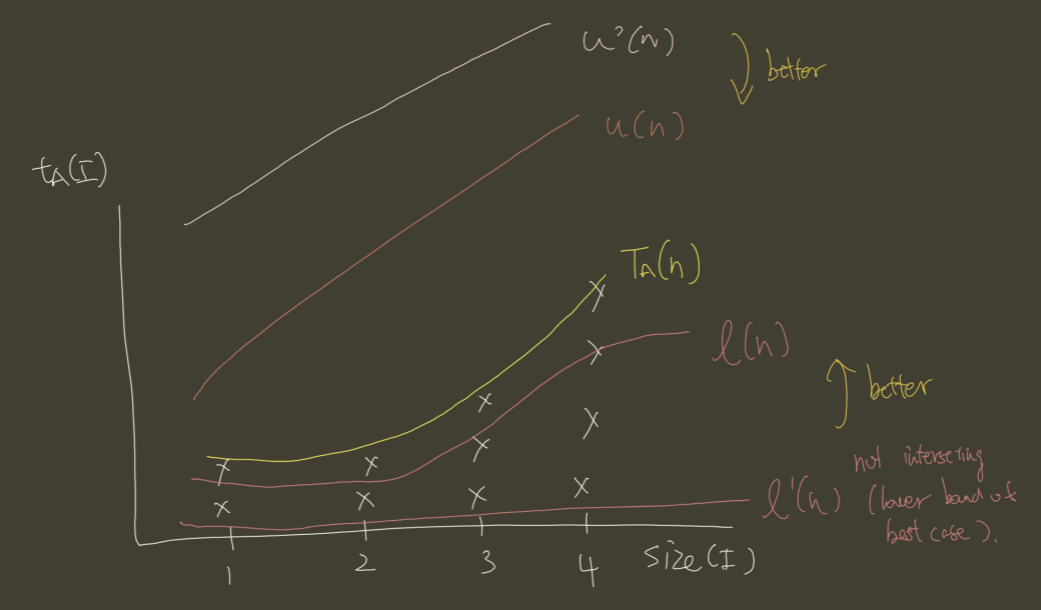 u'(n)
better
u(n)
t_A(I)
T_A(n)
l(n)
better
not interseting
l'(n) (lower band of
best case).
1 2 3 4 size(I)